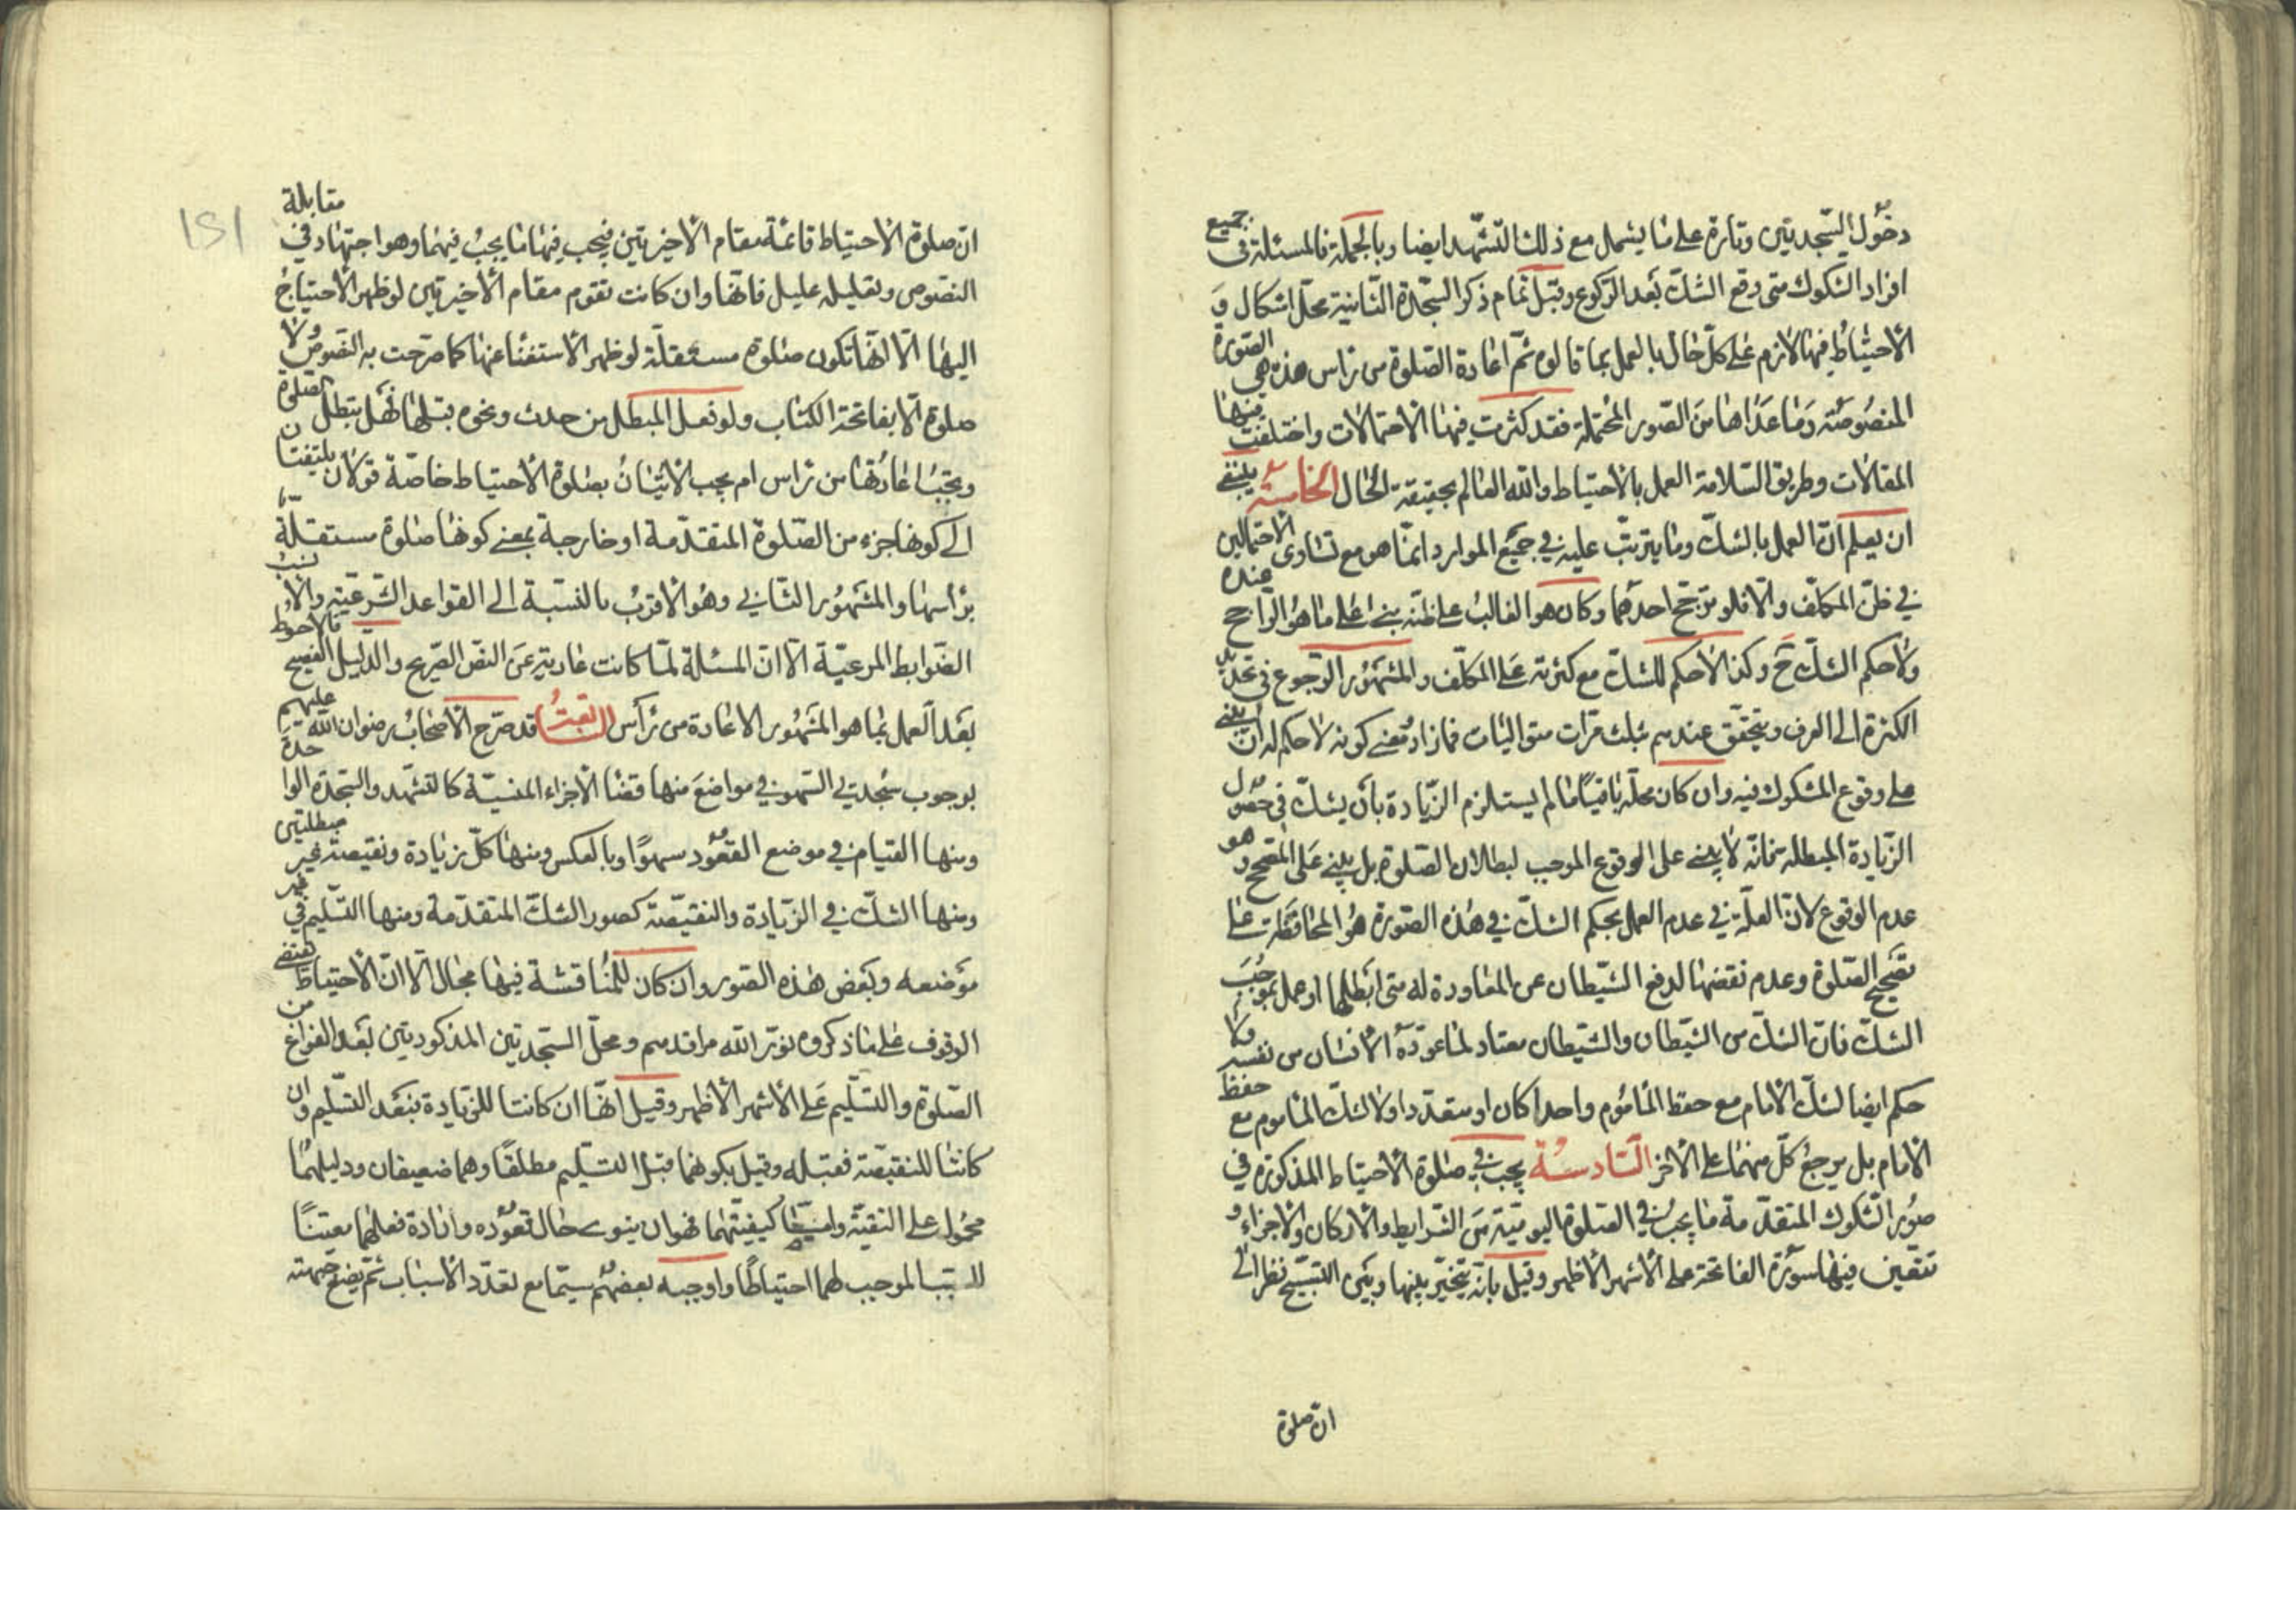 دخول السجدتين وتارة على ما يشمل مع ذلك التشهد ايضا وبالجملة فالمسئلة في جميع
افراد الشكوك متى وقع الشك بعد الركوع وقبل تمام ذكر السجدة الثانية محل اشكال و
الاحتياط فيها لازم على كل حال بالعمل بما قالوه ثم اعادة الصلوة من راس هذه هي الصورة
المنصوصة وما عداها من الصور المحتملة فقد كثرت فيها الاحتمالات واختلفت فيها
المقالات وطريق السلامة العمل بالاحتياط والله العالم بحقيقة الحال الخامسة ينبغي
ان يعلم ان العمل بالشك وما يترتب عليه في جميع الموارد انما هو مع تساوي الاحتمالين
في ظن المكلف والا فلو ترجح احدهما وكان هو الغالب على ظنه بنى على ما هو الراجح عنده
ولا حكم للشك ح وكذا لا حكم للشك مع كثرته على المكلف والمشهور الرجوع في تحديد
الكثرة الى العرف ويتحقق عندهم بثلث مرات متواليات فما زاد ومعنى كونه لا حكم له ان يبنى
على وقوع المشكوك فيه وان كان محله باقيا ما لم يستلزم الزيادة بان يشك في حصول
الزيادة المبطلة فانه لا يبني على الوقوع الموجب لبطلان الصلوة بل يبني على المصحح وهو
عدم الوقوع لان العلة في عدم العمل بحكم الشك في هذه الصورة هو المحافظة على
تصحيح الصلوة وعدم نقضها لدفع الشيطان عن المعاودة له متى ابطلها او عمل بموجب
الشك فان الشك من الشيطان والشيطان معتاد لما عوده الانسان من نفسه ولا
حكم ايضا لشك الامام مع حفظ الماموم واحدا كان او متعددا ولا لشك الماموم مع حفظ
الامام بل يرجع كل منهما على الاخر السادسة يجب في صلوة الاحتياط المذكورة في
صور الشكوك المتقدمة ما يجب في الصلوة اليومية من الشرايط والاركان والاجزاء و
تتعين فيها سورة الفاتحة على الاشهر الاظهر وقيل بانه يتخير بينها وبين التسبيح نظرا الى
ان صلوة
151
ان صلوة الاحتياط قائمة مقام الاخيرتين فيجب فيها ما يجب فيهما وهو اجتهاد في مقابلة
النصوص وتعليله عليل فانها وان كانت تقوم مقام الاخيرتين لو ظهر الاحتياج
اليها الا انها تكون صلوة مستقلة لو ظهر الاستغنا عنها كما صرحت به النصوص ولا
صلوة الا بفاتحة الكتاب ولو فعل المبطل من حدث ونحوه قبلها فهل تبطل الصلوة
ويجب اعادتها من راس ام يجب الاتيان بصلوة الاحتياط خاصة قولان يلتفتان
الى كونها جزء من الصلوة المتقدمة او خارجة بمعنى كونها صلوة مستقلة
براسها والمشهور الثاني وهو الاقرب بالنسبة الى القواعد الشرعية والانسب
الضوابط المرعية الا ان المسئلة لما كانت عارية عن النص الصريح والدليل الفصيح فالاحوط
بعد العمل بما هو المشهور الاعادة من راس السابعة قد صرح الاصحاب رضوان الله عليهم
بوجوب سجدتي السهو في مواضع منها قضا الاجزاء المنسية كالتشهد والسجدة الواحدة
ومنها القيام في موضع القعود سهوا وبالعكس ومنها كل زيادة ونقيصة غير مبطلتين
ومنها الشك في الزيادة والنقيصة كصور الشك المتقدمة ومنها التسليم في غير
موضعه وبعض هذه الصور وان كان للمناقشة فيها مجال الا ان الاحتياط يقتضي
الوقوف على ما ذكروه نور الله مراقدهم ومحل السجدتين المذكورتين بعد الفراغ من
الصلوة والتسليم على الاشهر الاظهر وقيل انها ان كانتا للزيادة فبعد التسليم وان
كانتا للنقيصة فقبله وقيل بكونهما قبل التسليم مطلقا وهما ضعيفان ودليلهما
محمول على التقية واما كيفيتهما فهو ان ينوى حال قعوده وارادة فعلهما معينا
للسبب الموجب لهما احتياطا واوجبه بعضهم سيما مع تعدد الاسباب ثم يضع جبهته